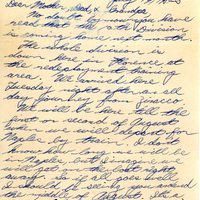 Dear Mother, Dad, & Grandpa
No doubt by now you have
read that the 10th Division
is coming home next month.
The whole division is
down here in Florence at
the redeployment training
area. We moved here on
Tuesday night after an all
day journey from
We will be here till the
first or second of August
when we will depart for
Naples by train. I don't
know how long we will be
in Naples, but I imagine we
will get on the boat right
away. So if all goes well
I should be seeing you around
the middle of August. It's a